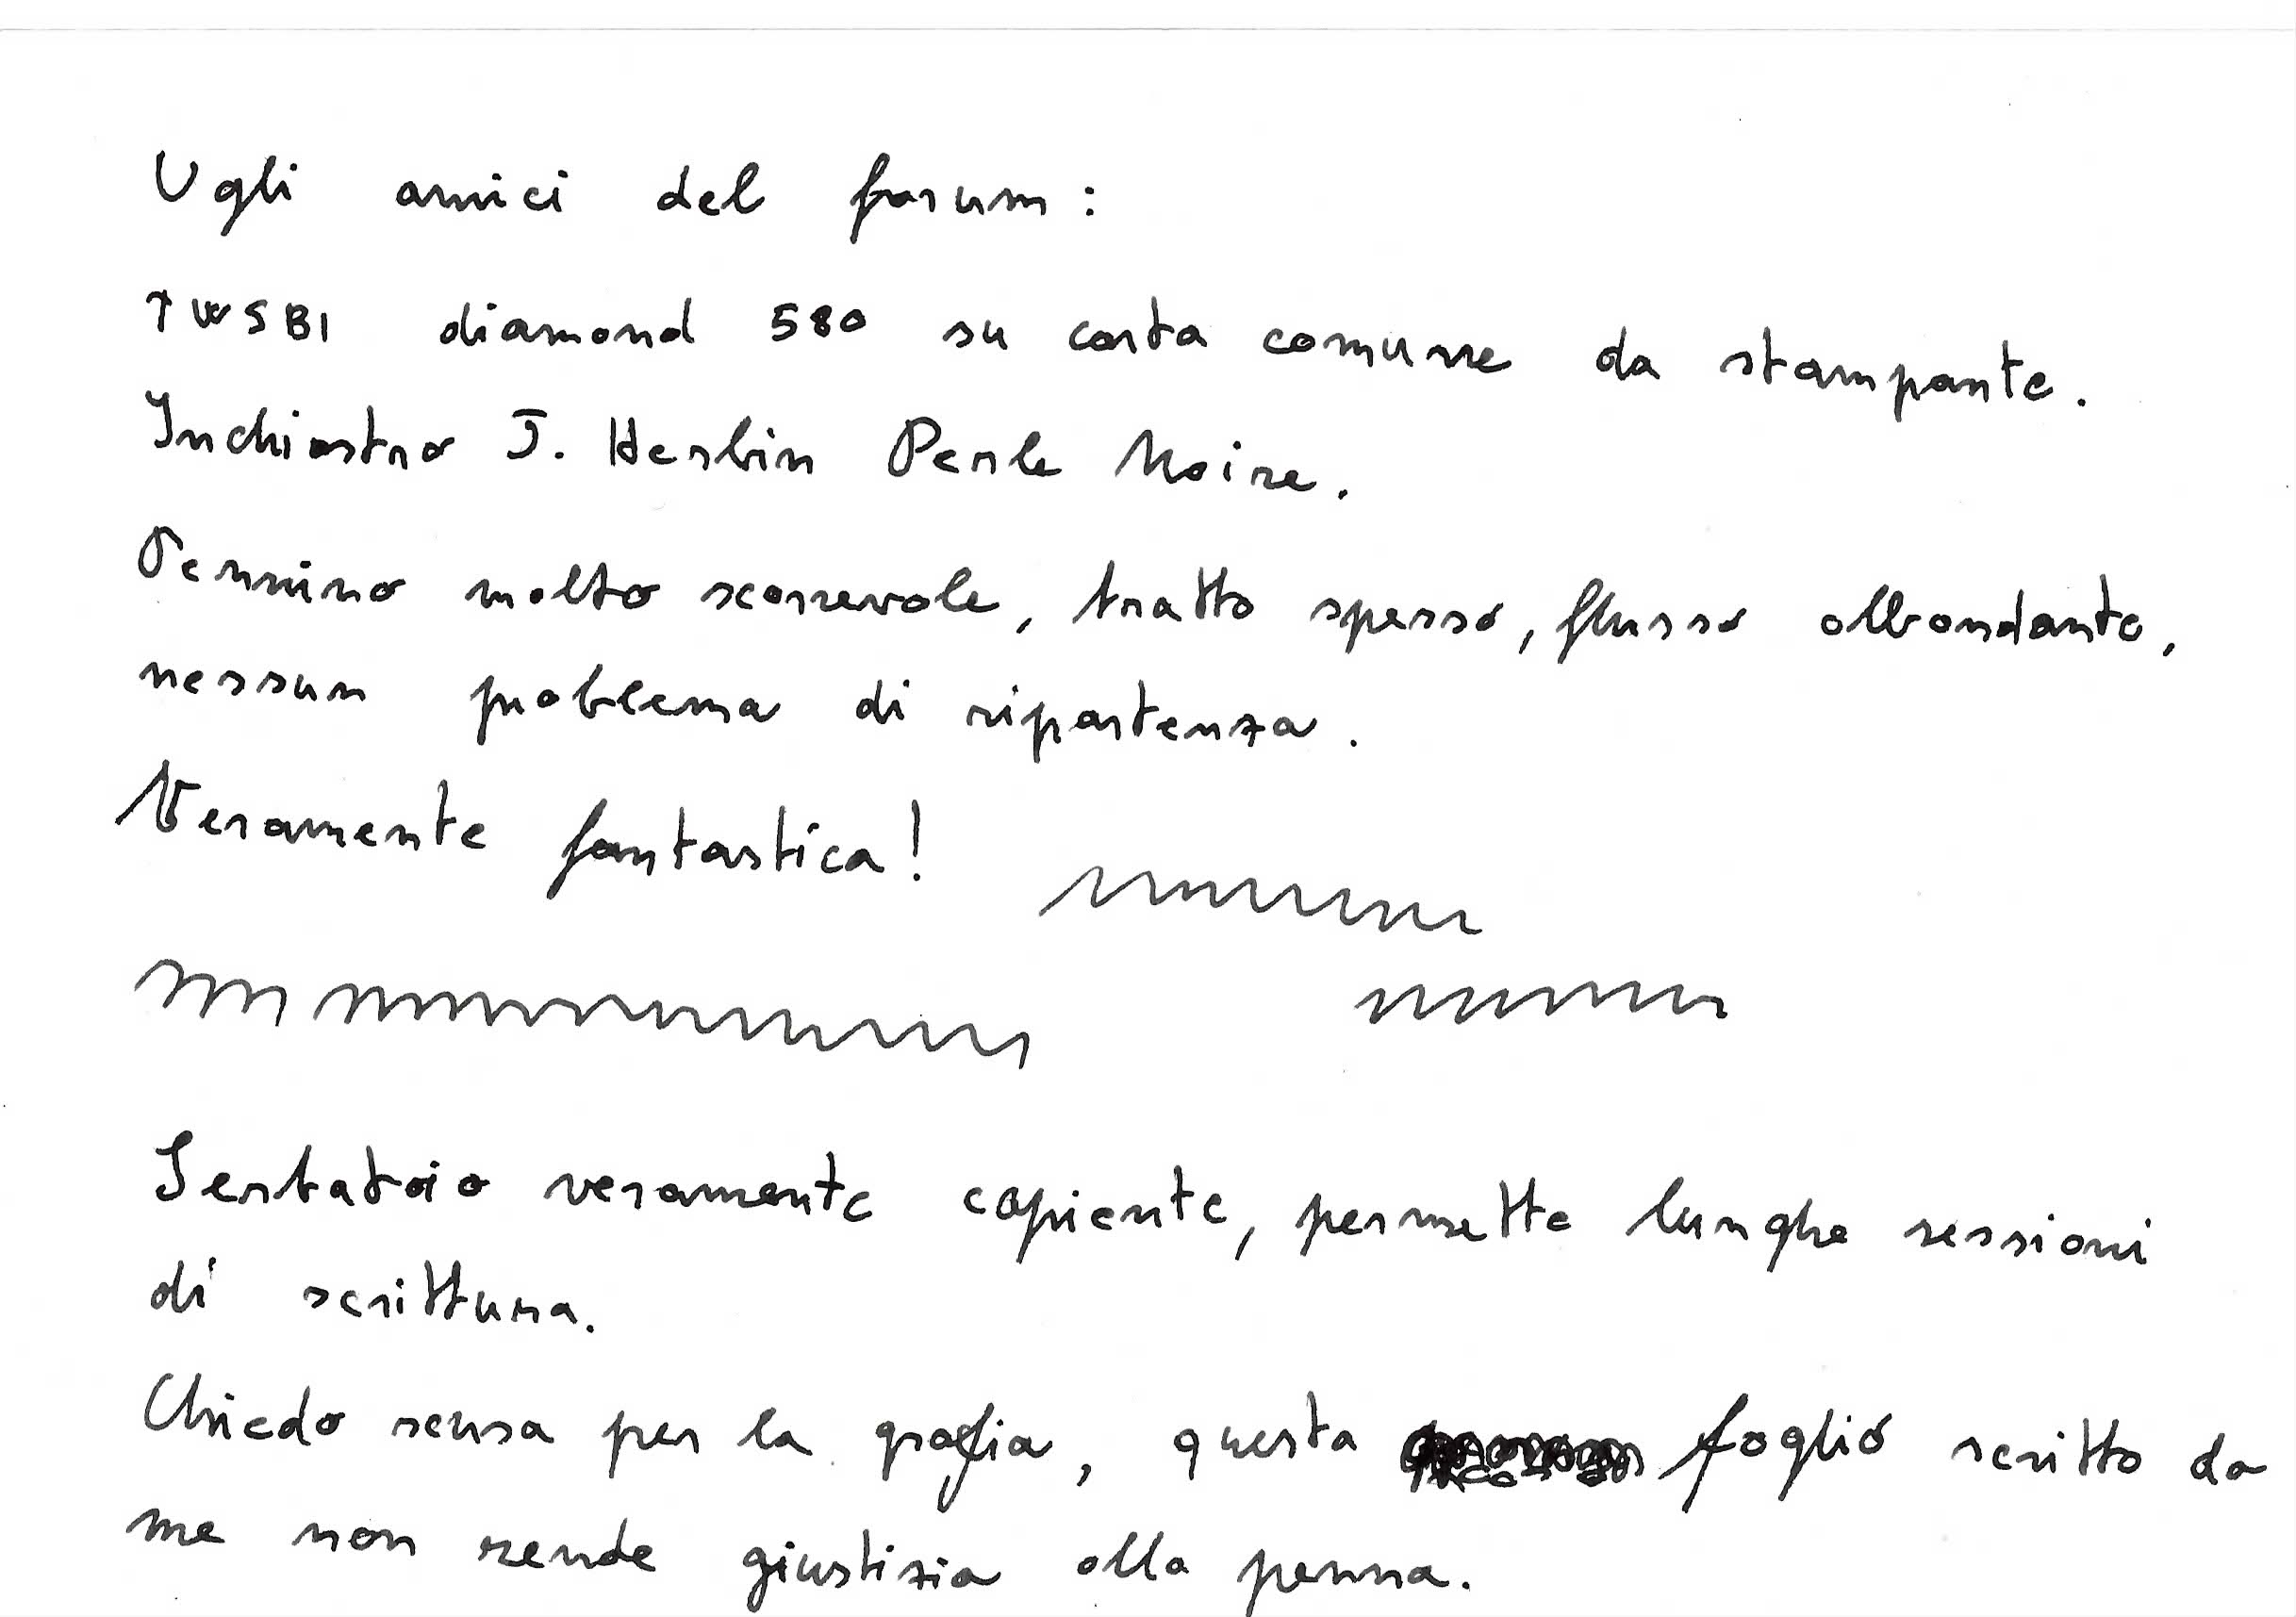 Ugli amici del forum:
TWSBI diamond 580 su carta comune da stampante.
Inchiostro J. Herbin Perle Noire.
Pennino molto scorrevole, tratto spesso, flusso abbondante,
nessun problema di ripartenza.
Veramente fantastica!
Serbatoio veramente capiente, permette lunghe sessioni
di scrittura.
Chiedo scusa per la grafia, questa foglio scritto da
me non rende giustizia alla penna.